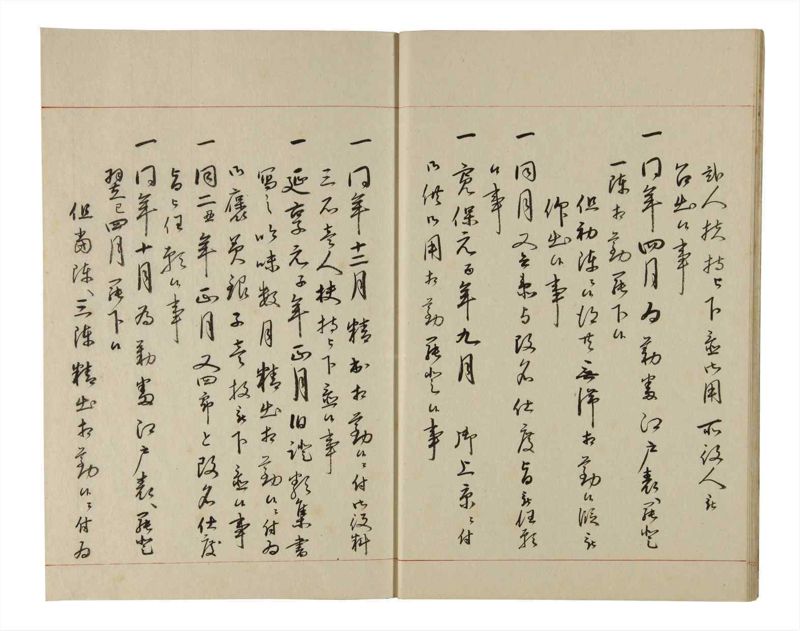 弐人扶持被下置御用所役人被
召出候事
一同年四月為勤番江戸表江罷登
一陳相勤罷下候
但初陳ニ候得共無滞相勤候段被
仰出候事
一同月又兵衛与改名仕度旨被任願
候事
一寛保元酉年九月 御上京ニ付
御供御用相勤罷登候事
一同年十二月精出相勤候ニ付御役料
三石壱人扶持被下置候事
一延享元子年正月旧證類集書
写之吟味数月精出相勤候ニ付為
御褒美銀子壱枚被下置候事
一同二丑年正月又四郎と改名仕度
旨被任願候事
一同年十月為勤番江戸表江罷登
翌巳四月罷下候
但当陳江三陳精出相勤候ニ付為